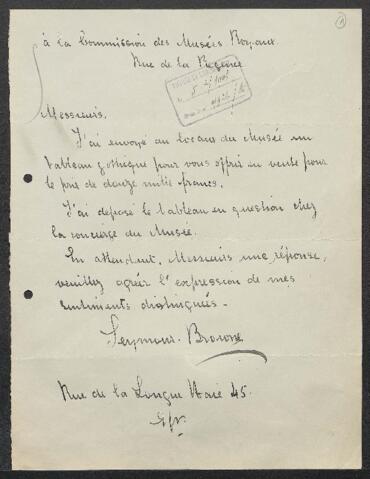 à la Commission des Musées Royaux.
Rue de la Régence
Messieurs.
J'ai envoyé au locaux du Musée un
tableau gothique pour vous offrir en vente pour
le prix de douze mille francs.
J'ai déposé le tableau en question chez
la concierge du Musée.
En attendant, Messieurs une réponse,
veuillez agréer l'expression de mes
sentiments distingués -
Seymour. Browne
Rue de la Longue Haie 45.